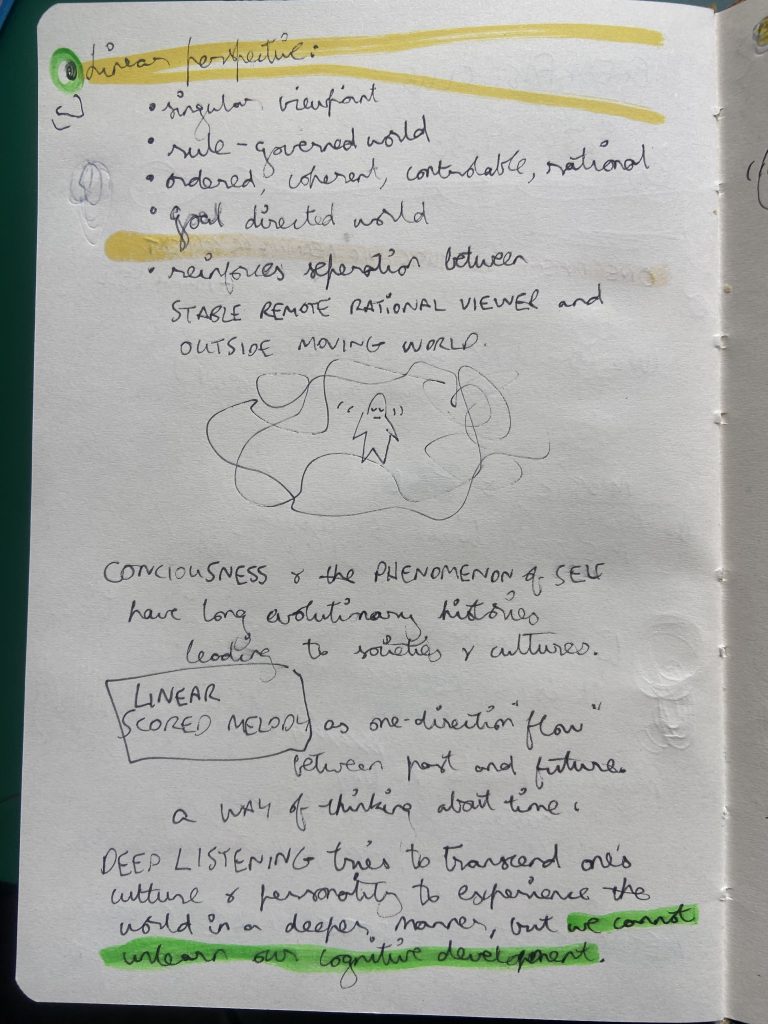 Linear perspective:
• singular viewpoint
• rule-governed world
• ordered, coherent, controlable, rational
• goal directed world
• reinforces seperation between
STABLE REMOTE RATIONAL VIEWER and
OUTSIDE MOVING WORLD.
CONCIOUSNESS & the PHENOMENON of SELF
have long evolutinary histories
leading to societies & cultures.
LINEAR
SCORED MELODY as one-direction "flow"
between past and future.
a WAY of thinking about time.
DEEP LISTENING tries to transcend one's
culture & personality to experience the
world in a deeper manner, but we cannot
unlearn our cognitive development.